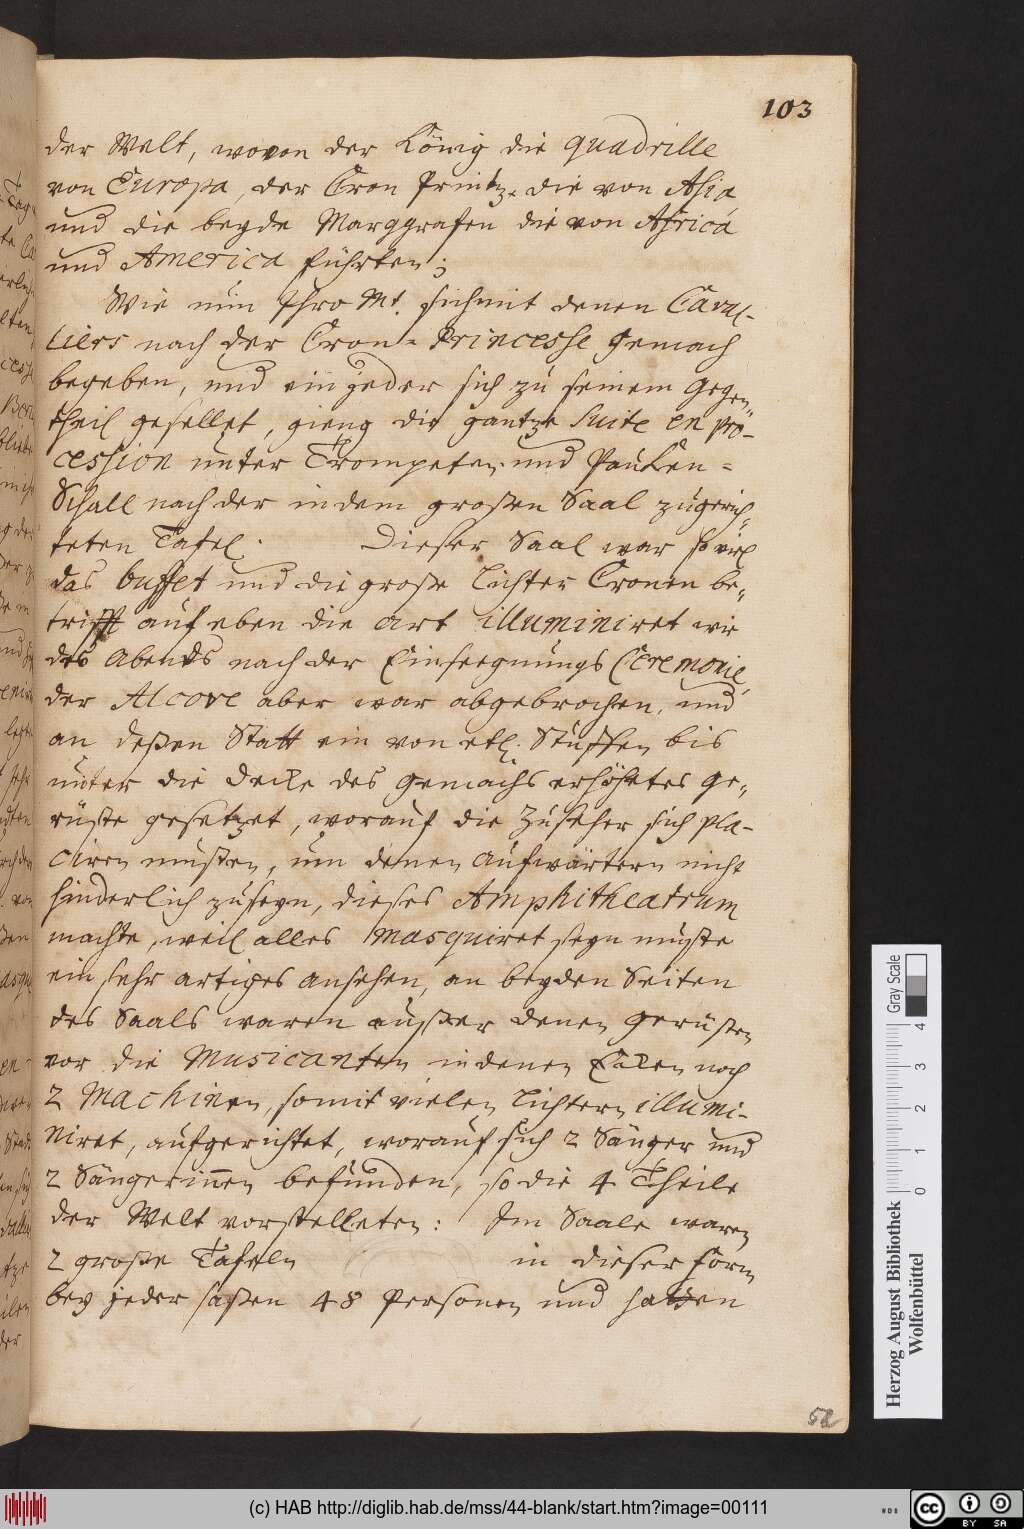 103
der Welt, wovon der König die quadrille
von Europa, der Cron Printz die von Asia
und die beyde Marggrafen die von Africa
und America führten;
Wie nun Ihro Mt. sich mit denen Caval-
liers nach der Cron-Princesse Gemach
begeben, und ein jeder sich zu seinem Gegen-
theil gesellet, gieng die gantze Suite en pro-
cession unter Trompeten und Paucken-
Schall nach der in dem großen Saal zugerich-
teten Tafel. Dieser Saal war so viel
das buffet und die große Lichter Cronen be-
trifft auf eben die art illuminiret wie
des Abends nach der Einseegnungs Ceremonie,
der Alcove aber war abgebrochen, und
an deßen Statt ein von etl. Stuffen bis
unter die Decke des gemachs erhöhetes Ge-
rüste gesetzet, worauf die Zuseher sich pla-
ciren musten, um denen Aufwärtern nicht
hinderlich zu seyn, dieses Amphitheatrum
machte, weil alles masquiret seyn muste
ein sehr artiges ansehen, an beyden Seiten
des Saals waren außer denen Gerüsten
vor die Musicanten in denen Ecken noch
2 Machinen, so mit vielen Lichtern illumi-
niret, aufgerichtet, worauf sich 2 Sänger und
2 Sängerinnen befunden, so die 4 Theile
der Welt vorstelleten: Im Saale waren
2 große Tafeln in dieser Form
bey jeder saßen 48 Personen und
52
Herzog August Bibliothek
Wolfenbüttel
0 1 2 3 4
Gray Scale
(c) HAB http://diglib.hab.de/mss/44-blank/start.htm?image=00111
WDB
cc BY SA